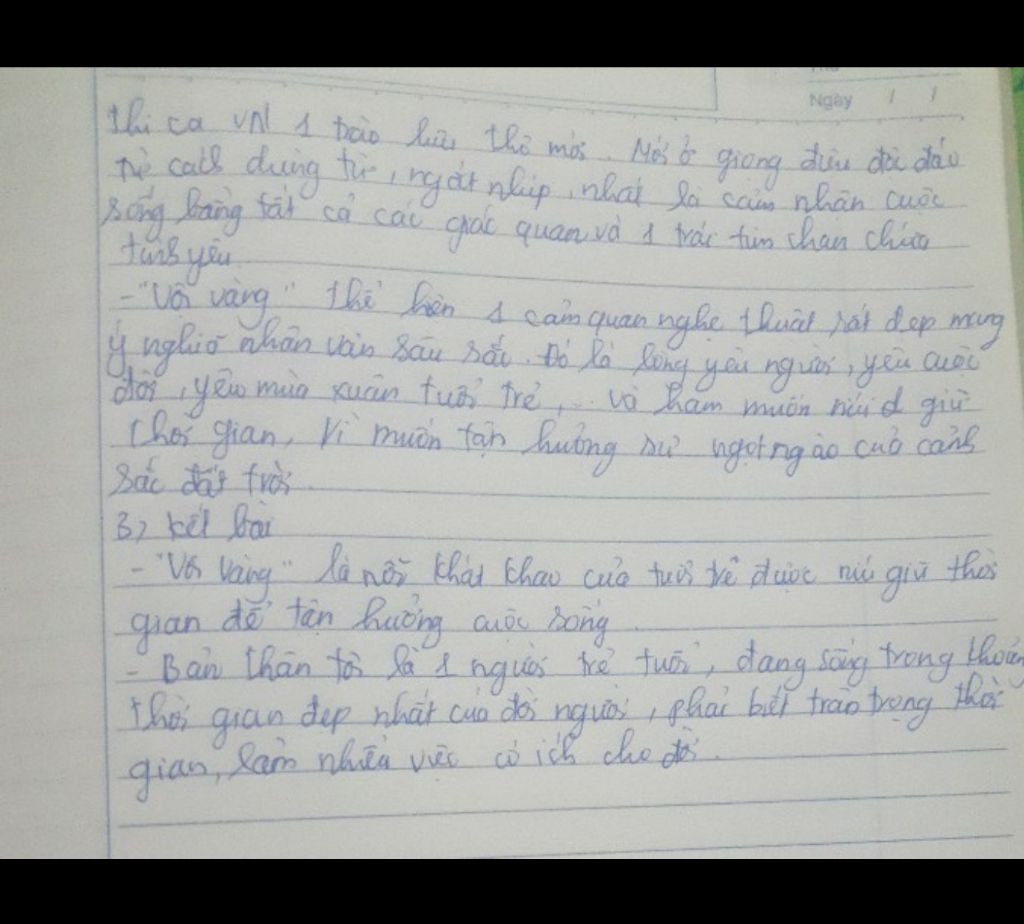 Ngày / /
thi ca VN 1 trào lưu thơ mới. Mới ở giọng điệu độc đáo
từ cách dùng từ, ngắt nhịp, nhất là cảm nhận cuộc
sống bằng tất cả các giác quan và 1 trái tim chan chứa
tình yêu.
- "Vội vàng" thể hiện 1 cảm quan nghệ thuật rất đẹp mang
ý nghĩa nhân văn sâu sắc. Đó là lòng yêu người, yêu cuộc
đời, yêu mùa xuân tuổi trẻ,... và ham muốn níu giữ
thời gian, vì muốn tận hưởng sự ngọt ngào của cảnh
sắc đất trời.
3) Kết bài
- "Vội Vàng" là nỗi khát khao của tuổi trẻ được níu giữ thời
gian để tận hưởng cuộc sống.
- Bản thân tôi là 1 người trẻ tuổi, đang sống trong khoảng
thời gian đẹp nhất của đời người, phải biết trân trọng thời
gian, làm nhiều việc có ích cho đời.